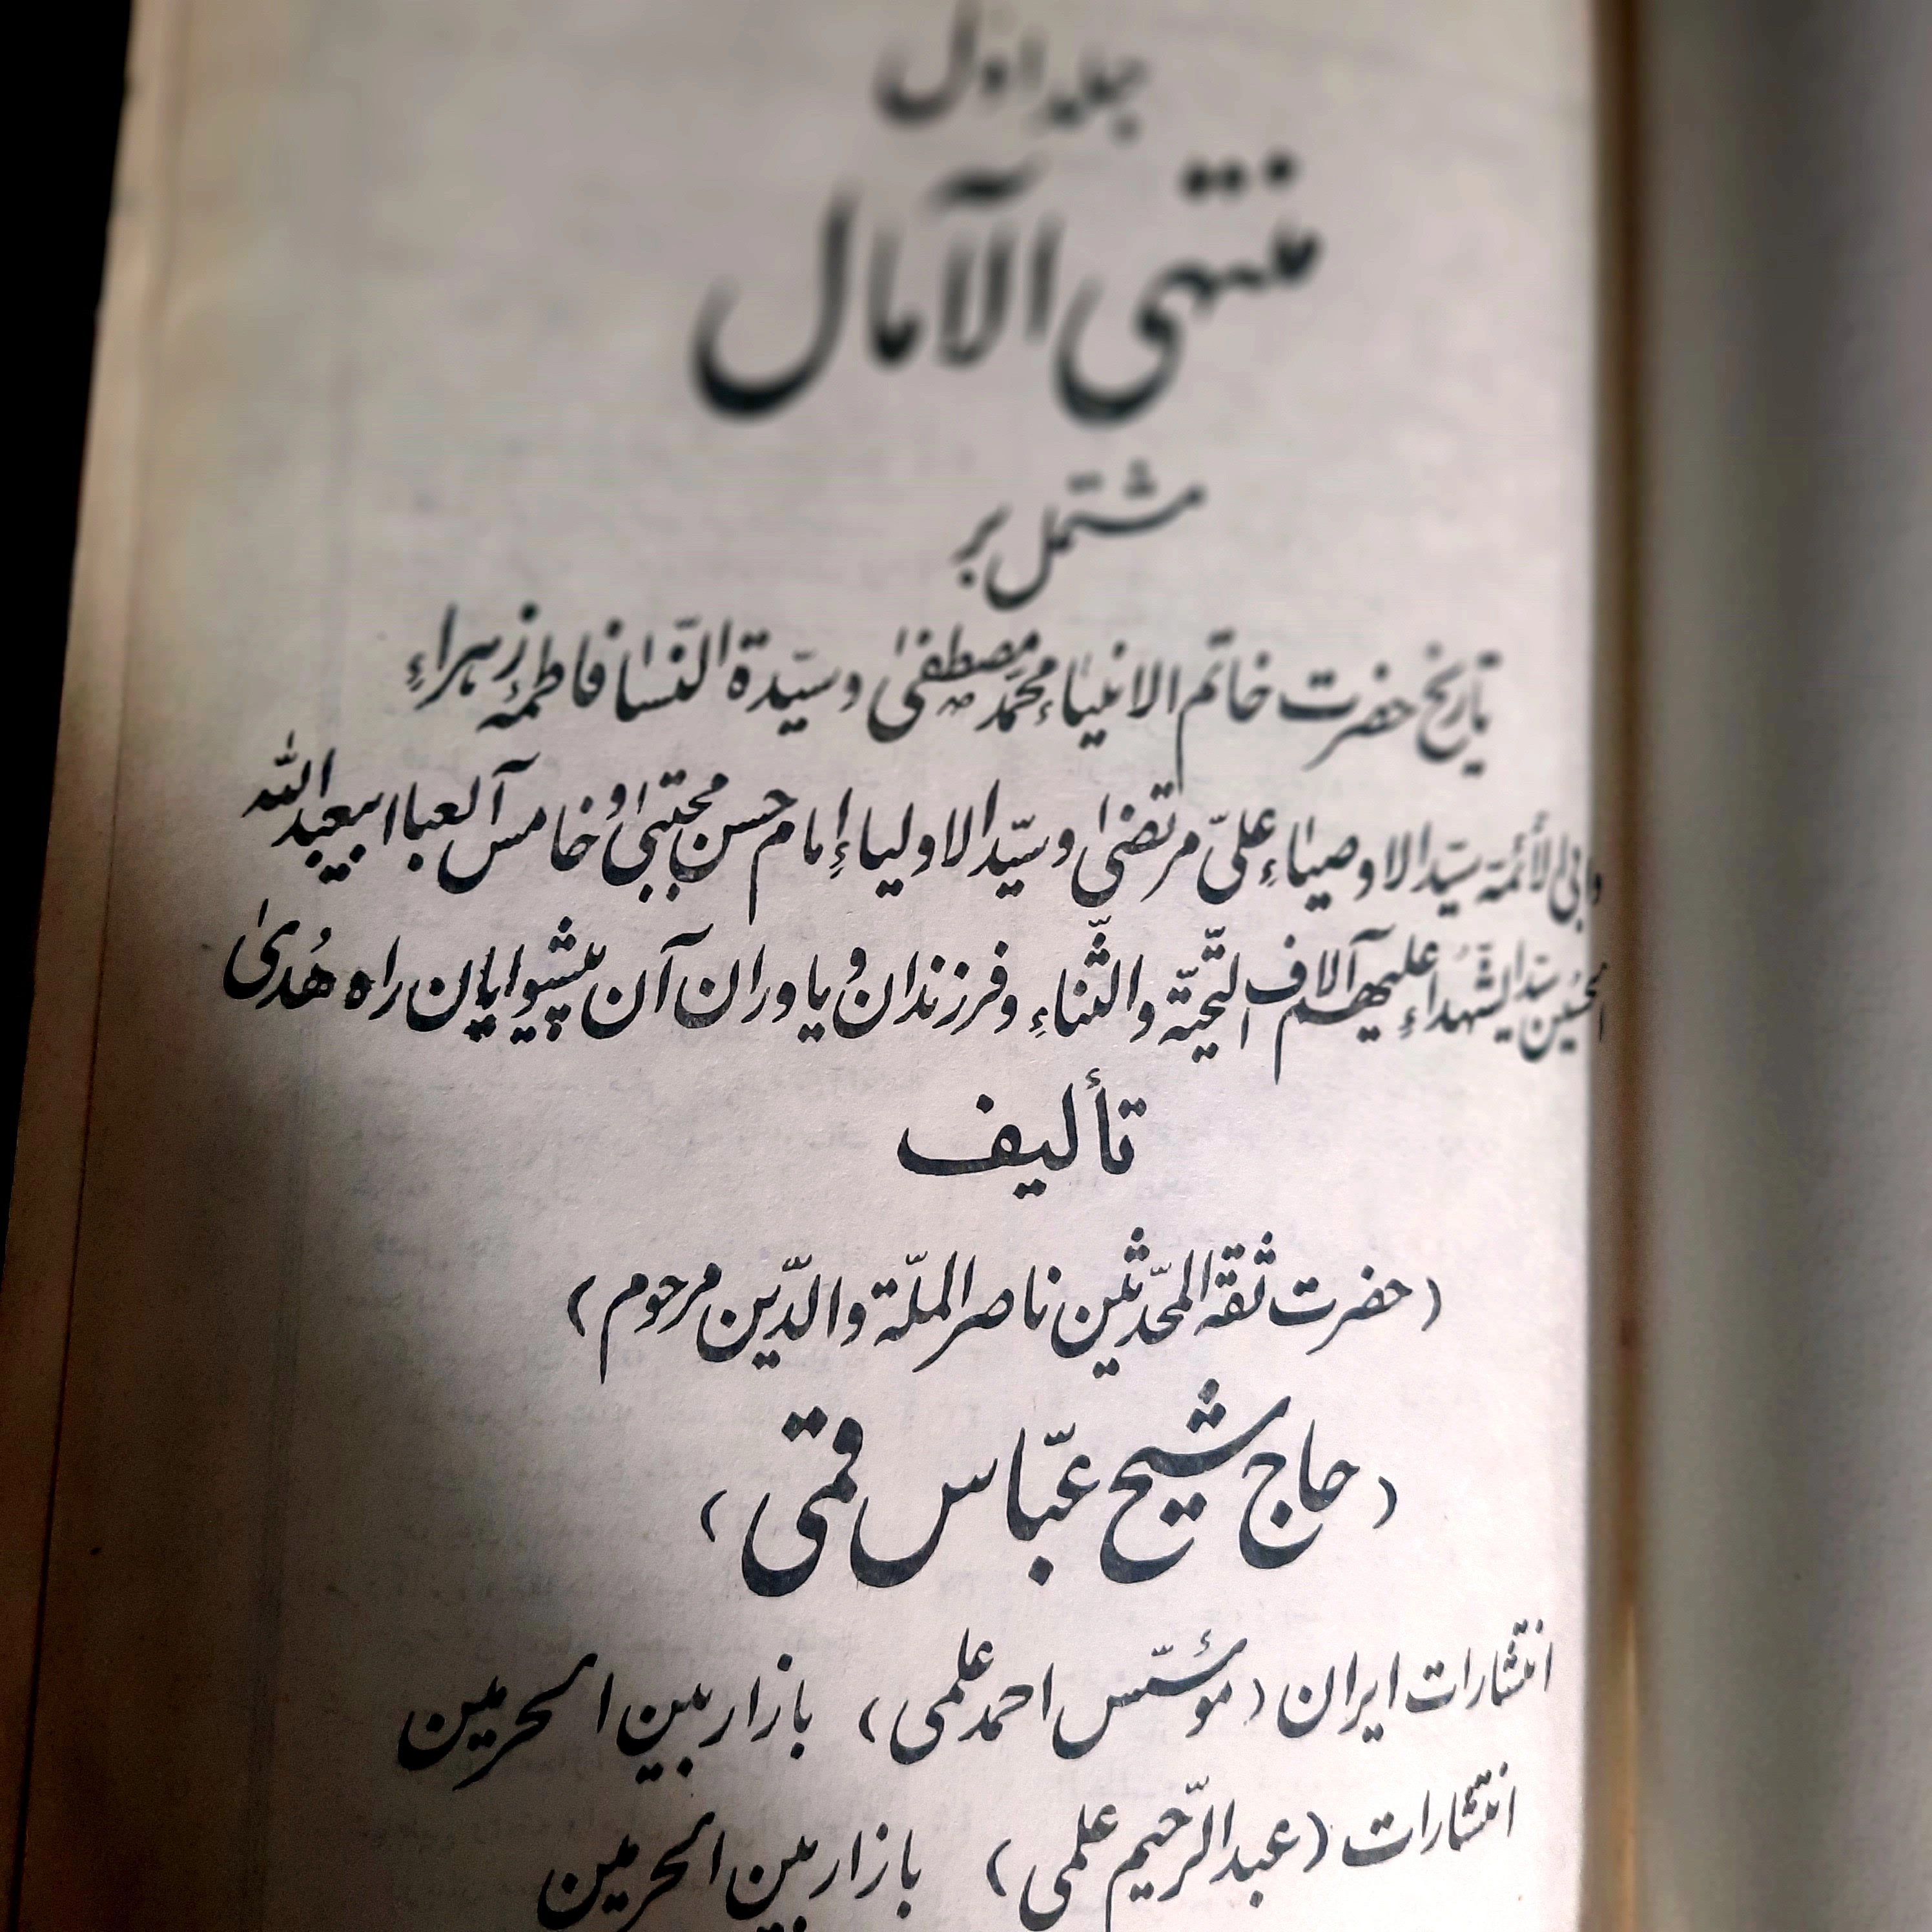 جلد اول
منتهی الآمال
مشتمل بر
تاریخ حضرت خاتم الانبیاء محمّد مصطفیٰ ص وسیّدة النّسا فاطمۀ زهراءِ
وابی الأئمّة سیّد الاوصیاءِ علیّ مرتضیٰ وسیّد الاولیاءِ امام حسن مجتبیٰ وخامس آلعبا ابیعبدالله
الحسین سیّد الشّهداءِ علیهم آلاف التّحیّة والثّناءِ وفرزندان ویاوران آن پیشوایان راه هُدیٰ
تألیف
(حضرت ثقة المحدّثین ناصر الملّة والدّین مرحوم)
(حاج شیخ عبّاس قمی)
انتشارات ایران (مؤسّس احمد علمی) بازار بین الحرمین
انتشارات (عبدالرّحیم علمی) بازار بین الحرمین